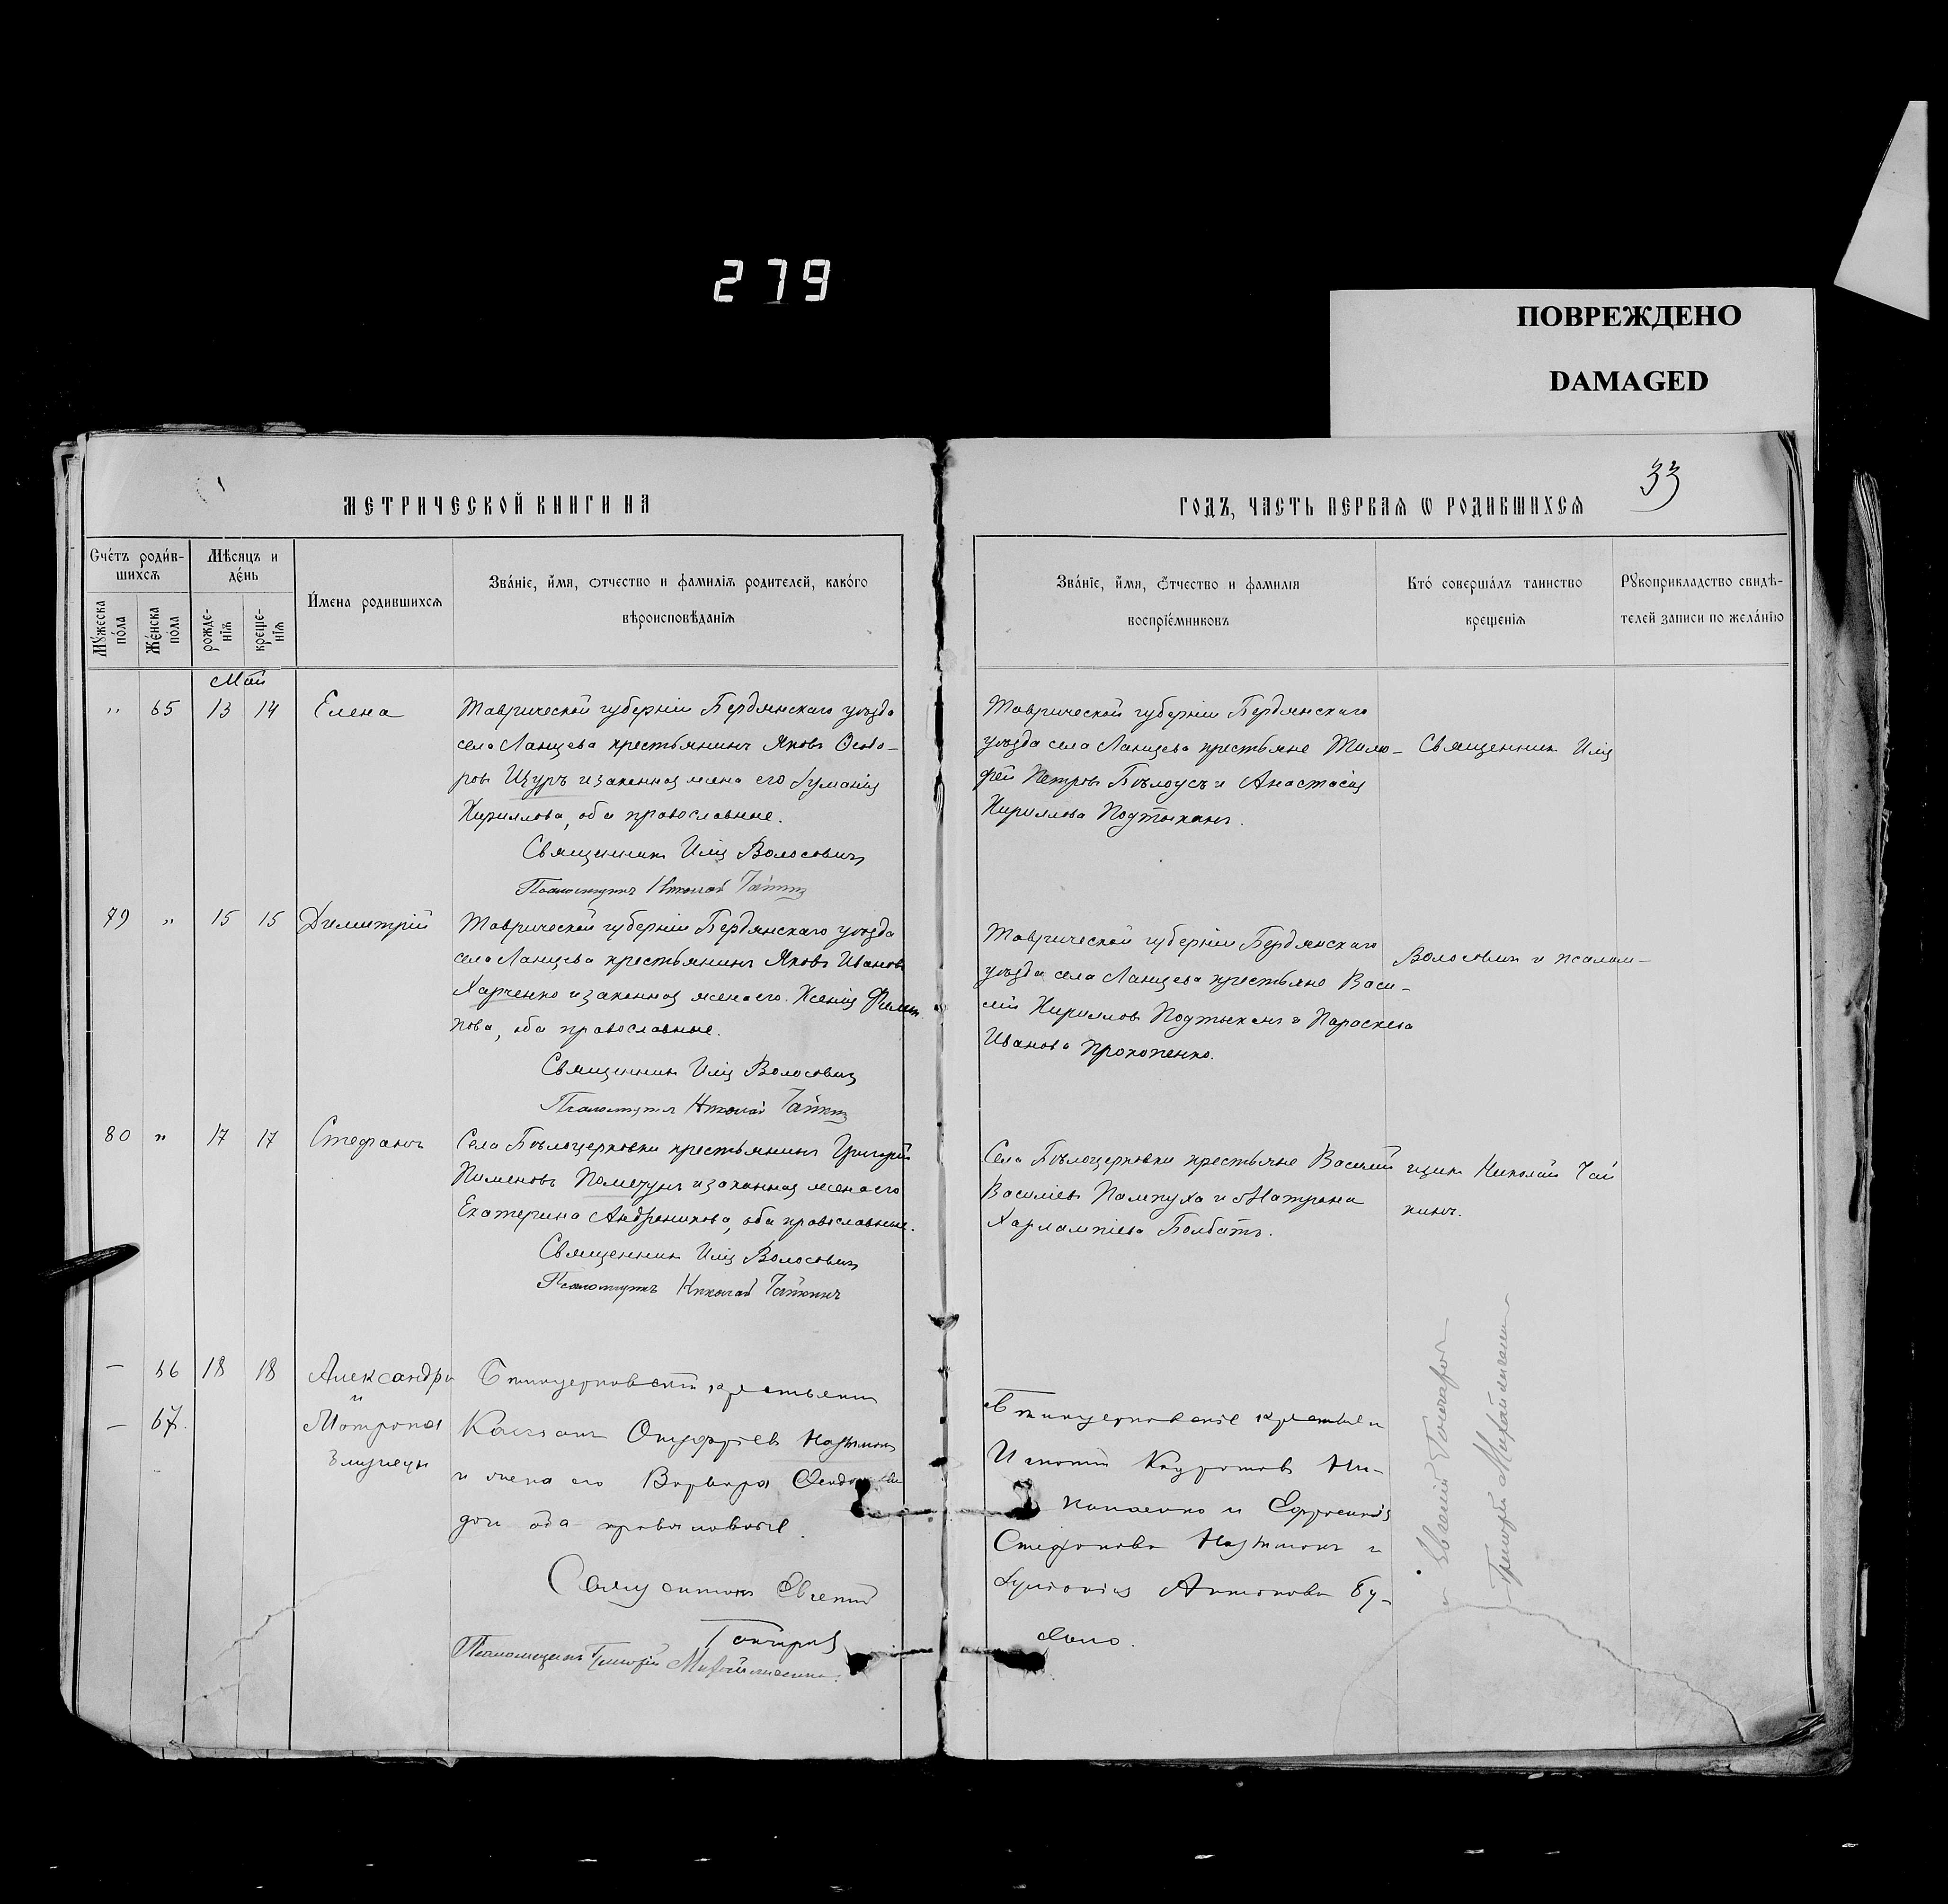 279
ПОВРЕЖДЕНО
DAMAGED
33
МЕТРИЧЕСКОЙ КНИГИ НА
ГОДЪ, ЧАСТЬ ПЕРВАѦ Ѡ РОДИВШИХСѦ
Счетъ родив-
шихсѧ
Мужеска пола
Женска пола
Мѣсяцъ и
день
рожде-
нїѧ
креще-
нїѧ
Имена родившихсѧ
Званїе, имя, отчество и фамилїѧ родителей, какого
вѣроисповѣданїѧ
Званїе, имя, ѿчество и фамилїя
воспрїемниковъ
Кто совершалъ таинство
крещенїѧ
Рꙋкоприкладство свидѣ-
телей записи по желанїю
Май
" 65 13 14 Елена
Таврической губерніи Бердянскаго уѣзда
села Ланцева крестьянинъ Яковъ
ровъ Щуръ и законная жена его
Кириллова, оба православные.
Священникъ Илія Волосовичъ
Псаломщикъ Николай
Таврической губерніи Бердянскаго
уѣзда села Ланцева крестьяне Тимо-
фей Петровъ Бѣлоусъ и Анастасія
Кириллова Подтыканъ.
Священникъ Илія
79 " 15 15 Димитрій
Таврической губерніи Бердянскаго уѣзда
села Ланцева крестьянинъ Яковъ Ивановъ
Харченко и законная жена его Ксенія Филип
пова, оба православные.
Священникъ Илія Волосовичъ
Псаломщикъ Николай
Таврической губерніи Бердянскаго
уѣзда села Ланцева крестьяне Васи-
лій Кирилловъ Подтыканъ и Параскева
Иванова Прокопенко.
Волосовичъ и псалом-
80 " 17 17 Стефанъ
Села Бѣлоцерковки крестьянинъ Григорій
Пименовъ и законная жена его
Екатерина Андроникова, оба православные.
Священникъ Илія Волосовичъ
Псаломщикъ Николай Чайкинъ
Села Бѣлоцерковки крестьяне Василій
Василіевъ Пампуха и Матрона
Харлампіева Болбатъ.
щикъ Николай Чай
кинъ.
— 66 18 18 Александра
и
— 67. Матрона
близнецы
крестьянинъ
Онуфріевъ
и жена его Варвара
оба православные.
Священникъ Евгеній
Гончаровъ
Псаломщикъ Григорій
крестьяне
и Ефросинія
Стефанова и
Антонова Бу-
Евгеній Гончаровъ
Григорій